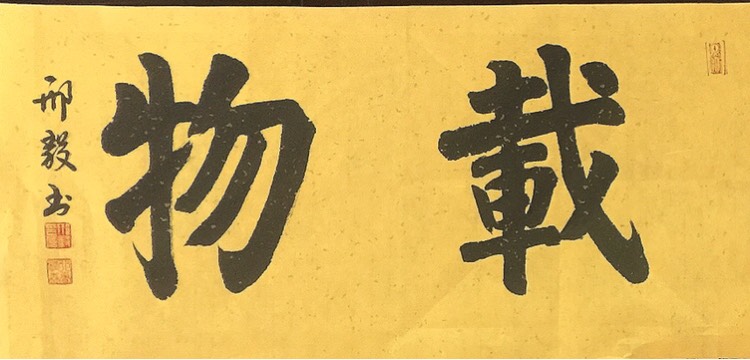 載物
邢毅书